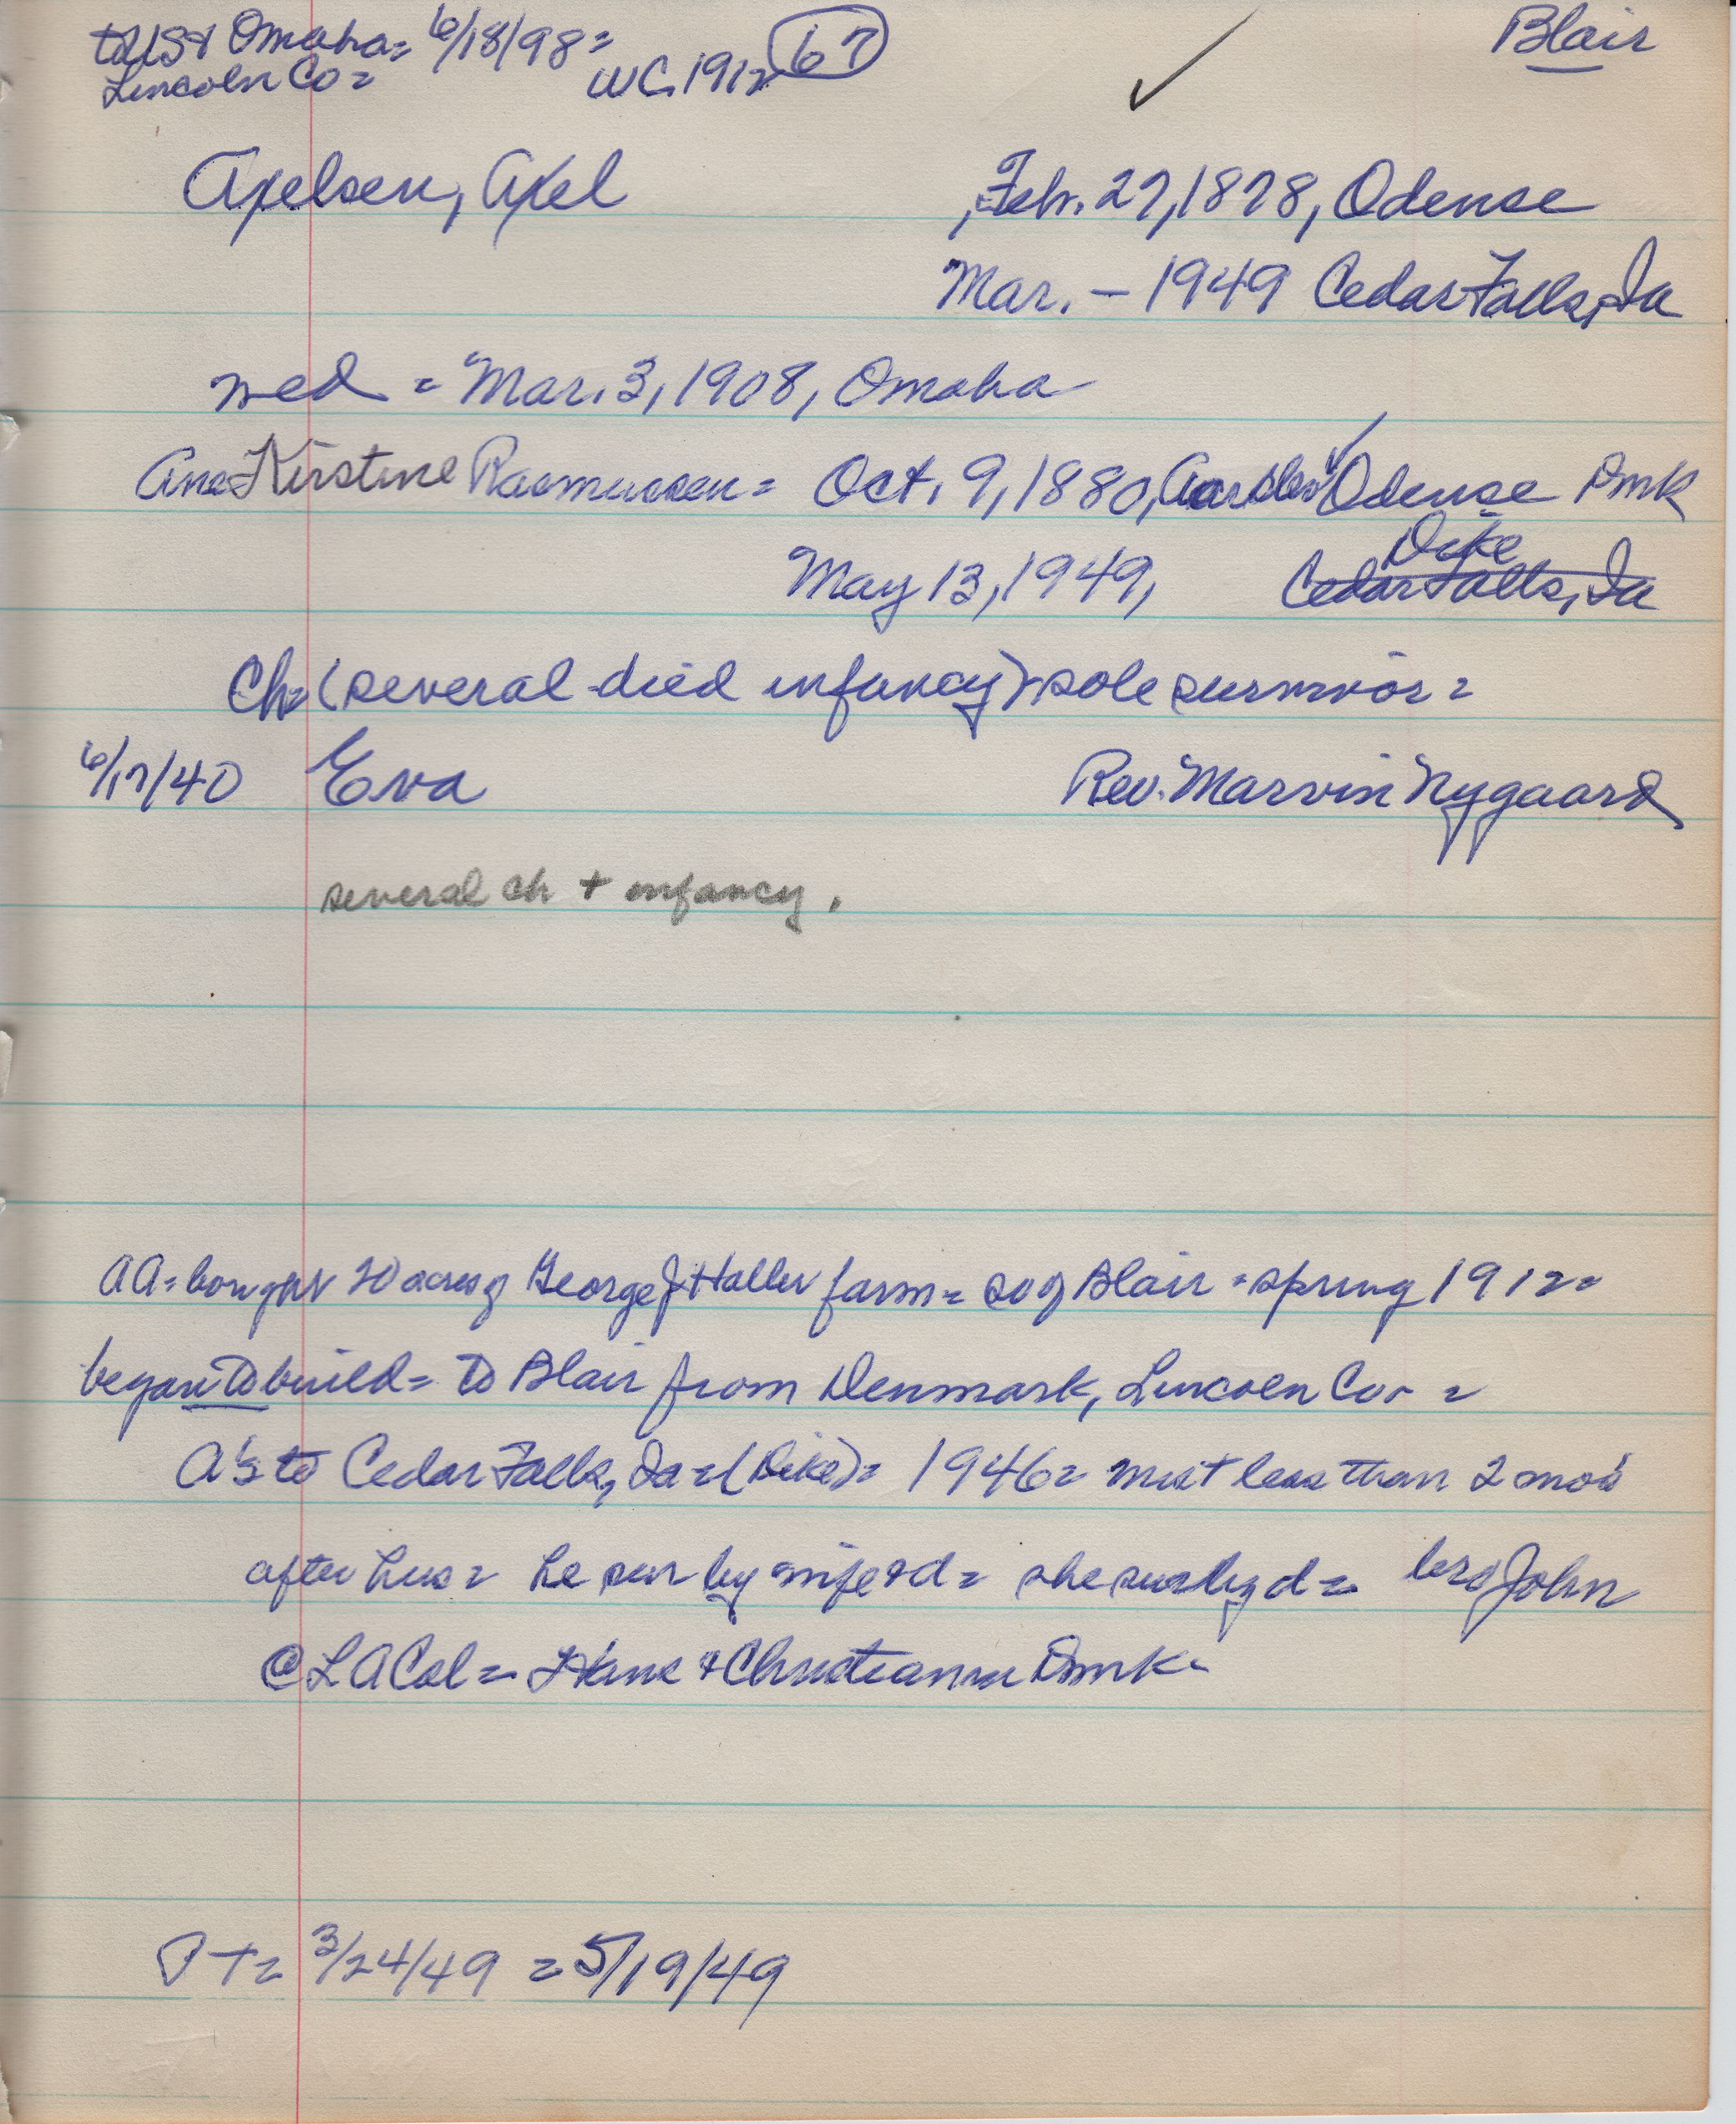 to US & Omaha = 6/18/98 =
Lincoln Co = WC. 1912 67
Blair
Axelsen, Axel Feb. 27, 1878, Odense
Mar. - 1949 Cedar Falls, Ia
wed = Mar. 3, 1908, Omaha
Ane Kirstine Rasmussen = Oct. 9, 1880, Odense Dmk
Dike
May 13, 1949, Cedar Falls, Ia
Ch = (several died infancy) sole survivor =
6/17/40 Eva Rev. Marvin Nygaard
several ch + infancy.
AA = bought 20 acres of George J Haller farm = so of Blair = spring 1912 =
began to build = to Blair from Denmark, Lincoln Co =
A's to Cedar Falls, Ia = (Dike) = 1946 = less than 2 mo's
after hus = he sur by wife & d = she sur by d = bro John
@ LA Cal = Hans + Dmk =
PT = 3/24/49 = 5/19/49